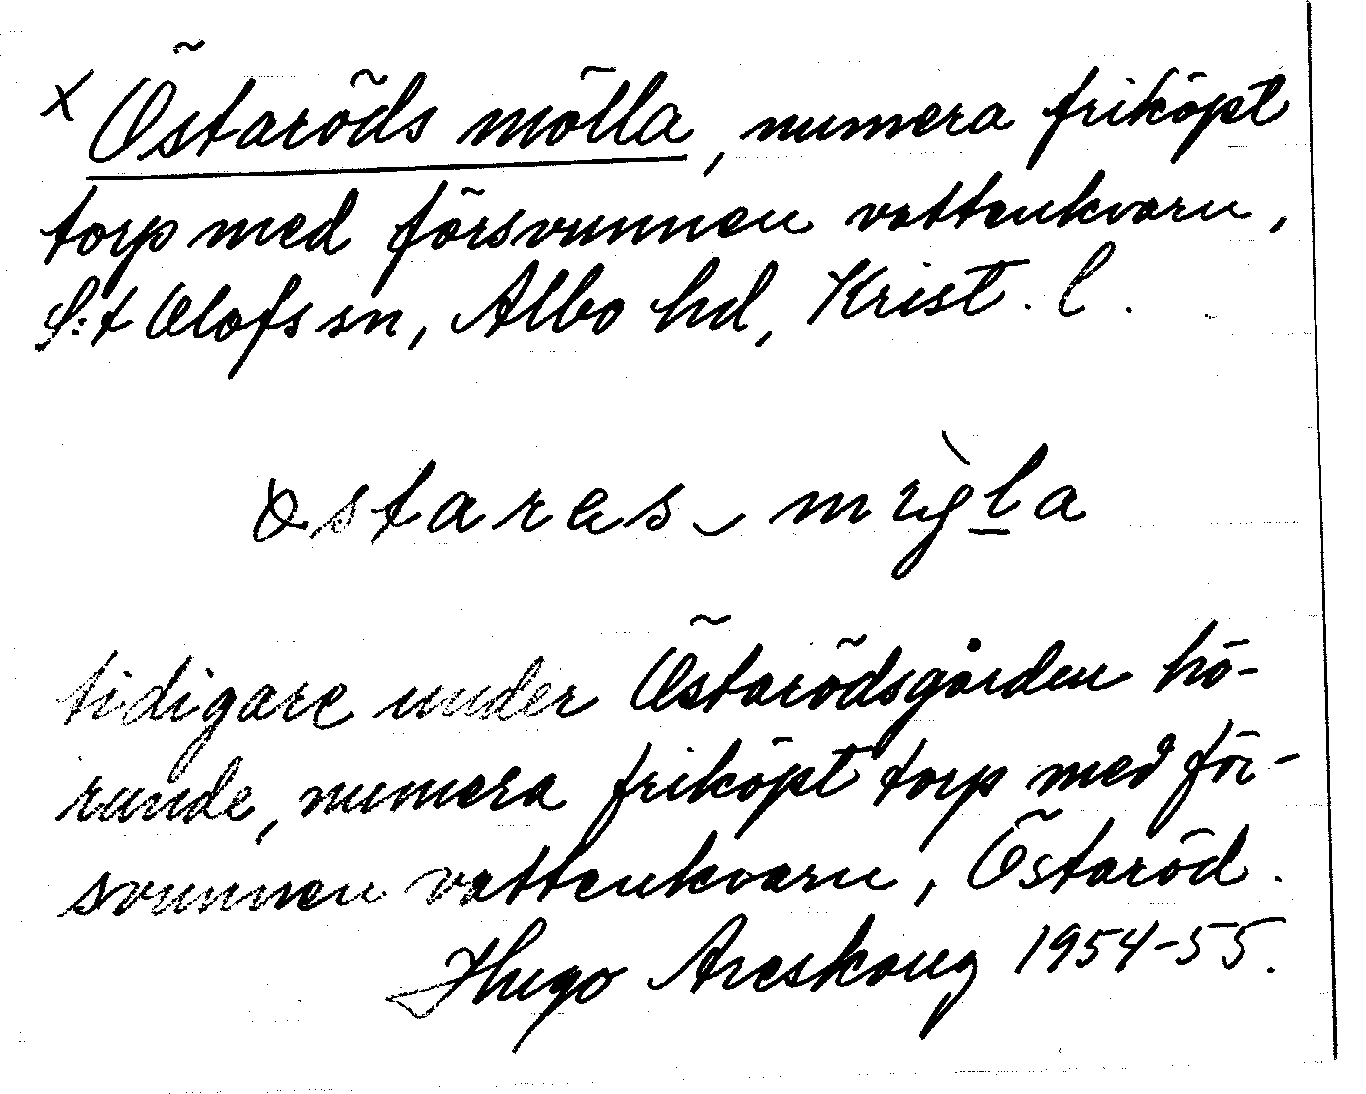 x Östaröds mölla, numera friköpt
torp med försvunnen vattenkvarn,
S:t Olofs sn, Albo hd, Krist. l.
tidigare under Östarödsgården hö-
rande, numera friköpt torp med för-
svunnen vattenkvarn, Östaröd.
Hugo Areskoug 1954-55.